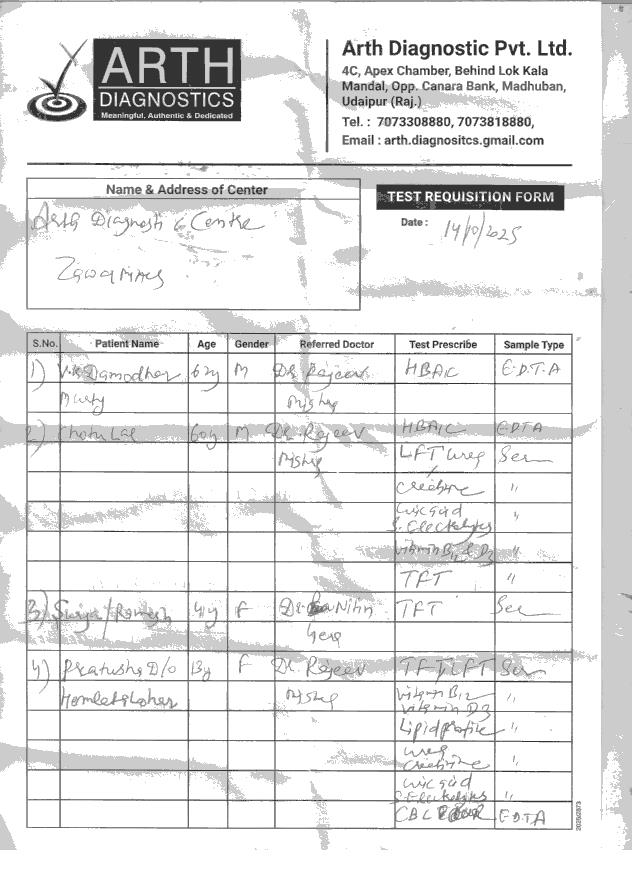 ARTH
DIAGNOSTICS
Meaningful, Authentic & Dedicated
Arth Diagnostic Pvt. Ltd.
4C, Apex Chamber, Behind Lok Kala
Mandal, Opp. Canara Bank, Madhuban,
Udaipur (Raj.)
Tel. : 7073308880, 7073818880,
Email : arth.diagnositcs.gmail.com
Name & Address of Center
Arth Diagnostic Centre
TEST REQUISITION FORM
Date : 14/10/2025
S.No. Patient Name Age Gender Referred Doctor Test Prescribe Sample Type
1) V.K Damodher 62y M Dr. Rajeev HBAIC E.D.T.A
Murty Mishra
2) Chotu Lal 60y M Dr. Rajeev HBAIC EDTA
Mishra LFT urea Ser
creatinine "
uric acid
S. Electrolytes "
vitamin B12 & D3 "
TFT "
3) Surya / Ramesh 41y F Dr. Nitin TFT Ser
4) Pratusha D/o 13y F Dr. Rajeev TFT LFT Ser
Mishra vitamin B12 "
vitamin D3
Lipid profile "
urea
creatinine "
uric acid
S. Electrolytes "
CBC EDTA
20250873